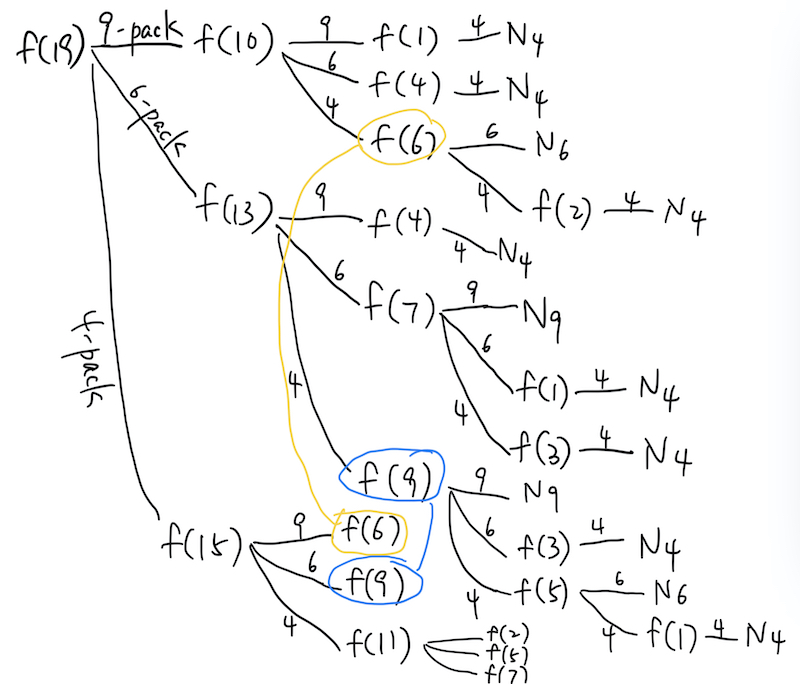 f(19) 9-pack f(10) 9 f(1) 4 N4
6 f(4) 4 N4
4 f(6) 6 N6
4 f(2) 4 N4
6-pack f(13) 9 f(4) 4 N4
6 f(7) 9 N9
6 f(1) 4 N4
4 f(3) 4 N4
4 f(9) 9 N9
6 f(3) 4 N4
4 f(5) 6 N6
4 f(1) 4 N4
4-pack f(15) 9 f(6)
6 f(9)
4 f(11) f(2)
f(5)
f(7)